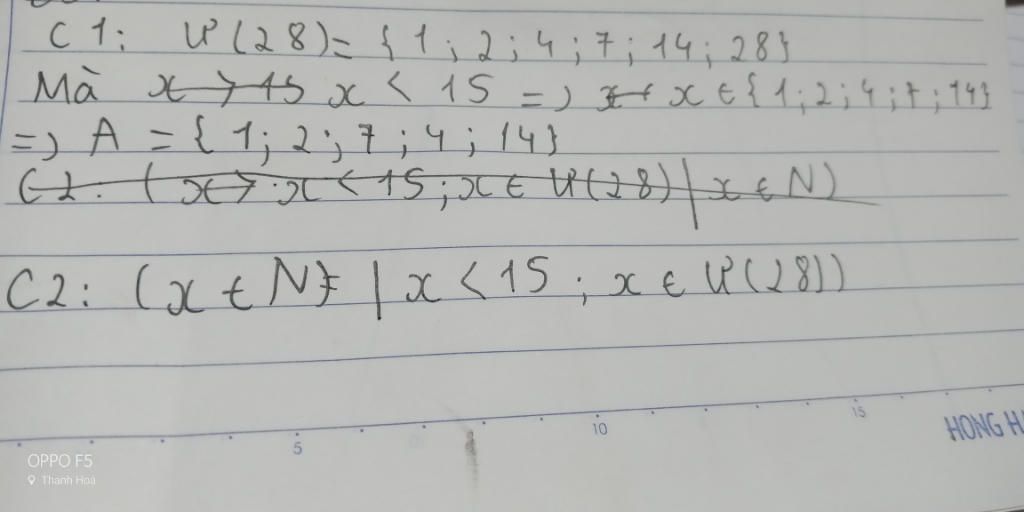 C1: Ư(28) = {1; 2; 4; 7; 14; 28}
Mà x > 15 x < 15 => x x ∈ {1; 2; 4; 7; 14}
=> A = {1; 2; 7; 4; 14}
C2: (x > x < 15; x ∈ Ư(28) | x ∈ N)
C2: (x ∈ N | x < 15; x ∈ Ư(28))
5 10 15
HONG H
OPPO F5
Thanh Hoá